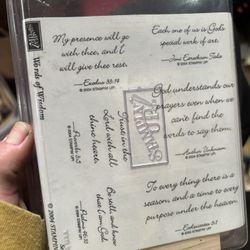 My presence will go
with thee, and I
will give thee rest.
Exodus 33:14
© 2004 STAMPIN' UP!
Each one of us is God's
special work of art.
Joni Eareckson Tada
© 2004 STAMPIN' UP!
God understands our
prayers even when we
can't find the
words to say them.
Author Unknown
© 2004 STAMPIN' UP!
Trust in the
Lord with all
thine heart.
Proverbs 3:5
© 2004 STAMPIN' UP!
Be still, and know
that I am God.
Psalm 46:10
To every thing there is a
season, and a time to every
purpose under the heaven.
Ecclesiastes 3:1
© 2004 STAMPIN' UP!
Words of Wisdom
© 2004 STAMPIN'